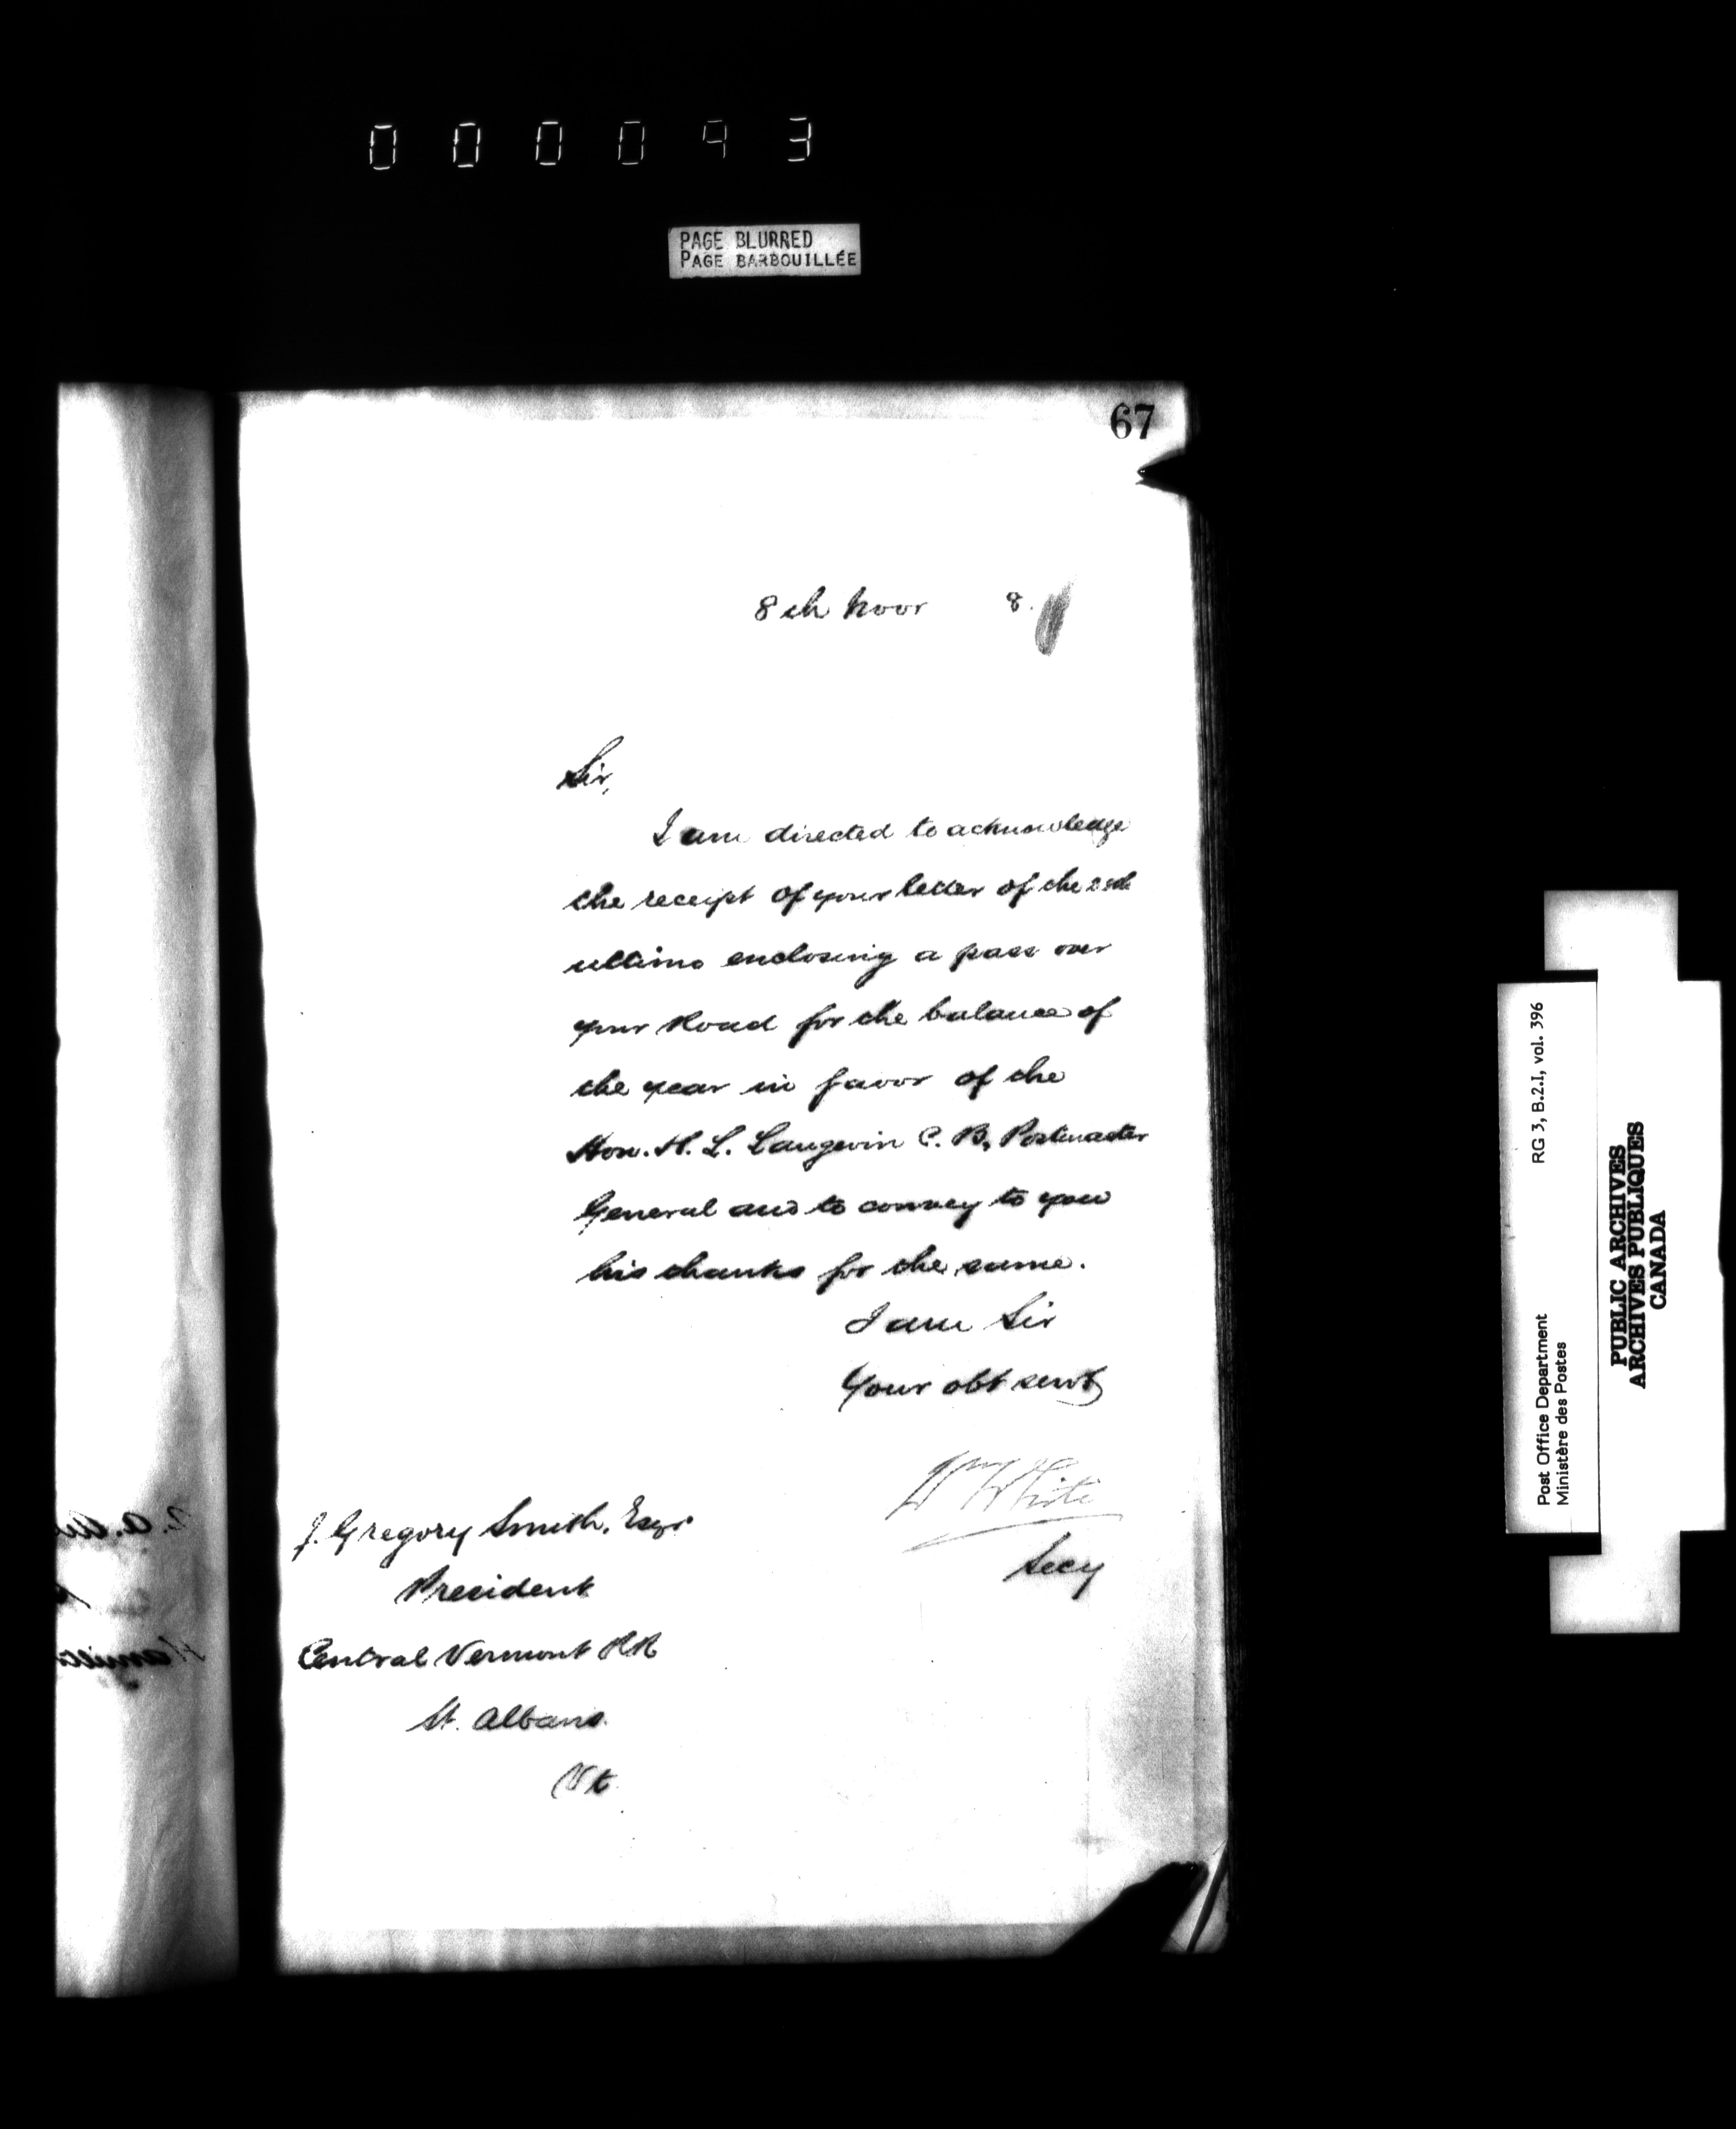 000093
PAGE BLURRED
PAGE BARBOUILLÉE
67
8th Novr 8
Sir,
I am directed to acknowledge
the receipt of your letter of the
ultimo enclosing a pass over
your Road for the balance of
the year in favor of the
Hon. H. L. Langevin C. B. Postmaster
General and to convey to you
his thanks for the same.
I am Sir
Your obt servt
Wm White
Secy
J. Gregory Smith, Esqr
President
Central Vermont RR
St. Albans
Vt
RG 3, B.2.I, vol. 396
Post Office Department
Ministère des Postes
PUBLIC ARCHIVES
ARCHIVES PUBLIQUES
CANADA